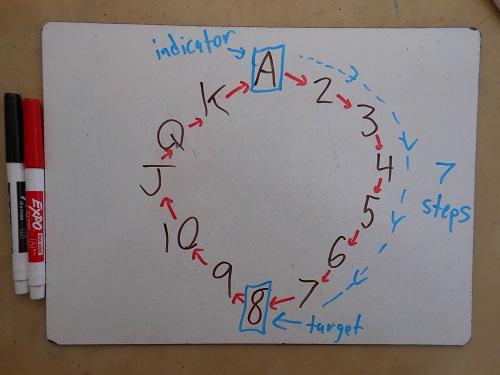 indicator
A
2
3
4
5
6
7
8
9
10
J
Q
K
7
steps
target
EXPO